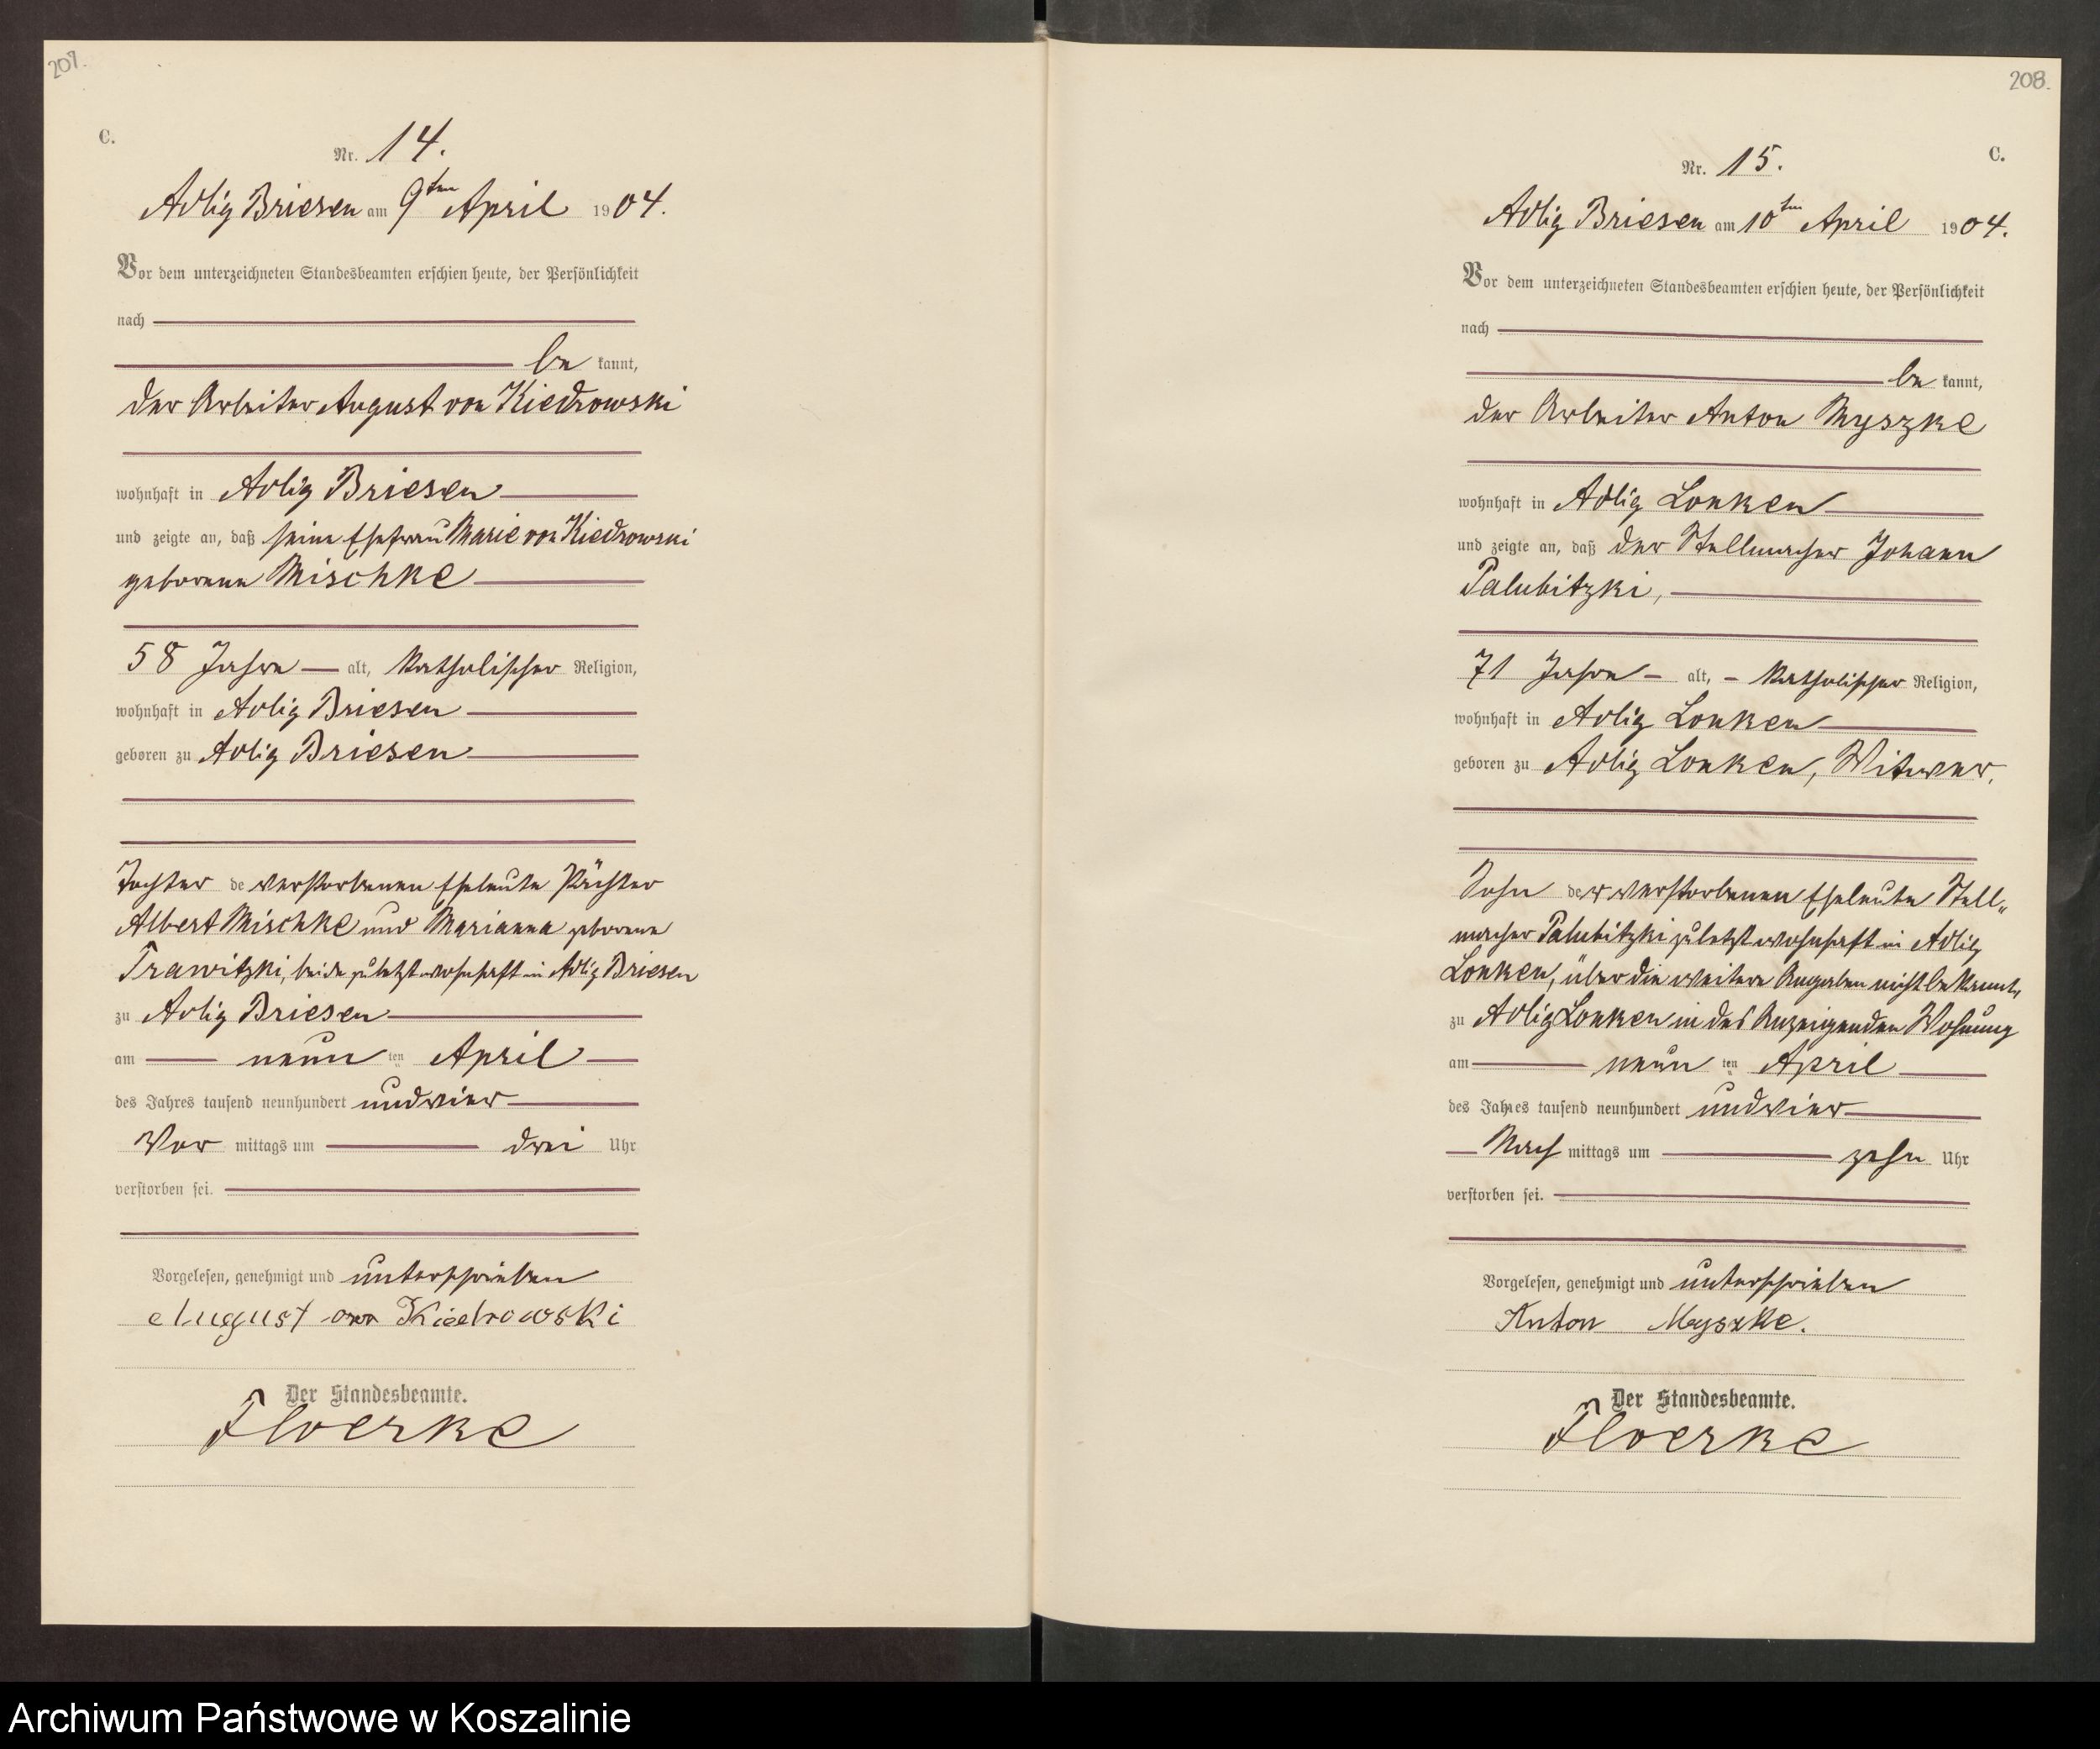 207.
C.
Nr. 14.
Adlig Briesen am 9ten April 1904.
Vor dem unterzeichneten Standesbeamten erschien heute, der Persönlichkeit
nach
be kannt,
der Arbeiter August von Kiedrowski
wohnhaft in Adlig Briesen
und zeigte an, daß seine Ehefrau Marie von Kiedrowski
geborene Mischke
58 Jahre alt, katholischer Religion,
wohnhaft in Adlig Briesen
geboren zu Adlig Briesen
Tochter de verstorbenen Eheleute Pächter
Albert Mischke und Marianna geborene
Trawitzki, beide zuletzt wohnhaft in Adlig Briesen
zu Adlig Briesen
am neun ten April
des Jahres tausend neunhundert und vier
Vor mittags um drei Uhr
verstorben sei.
Vorgelesen, genehmigt und unterschrieben
August von Kiedrowski
Der Standesbeamte.
Floerke
208.
C.
Nr. 15.
Adlig Briesen am 10ten April 1904.
Vor dem unterzeichneten Standesbeamten erschien heute, der Persönlichkeit
nach
be kannt,
der Arbeiter Anton Myszke
wohnhaft in Adlig Lonken
und zeigte an, daß der Stellmacher Johann
Palubitzki,
71 Jahre alt, katholischer Religion,
wohnhaft in Adlig Lonken
geboren zu Adlig Lonken, Witwer.
Sohn der verstorbenen Eheleute Stell„
macher Palubitzki zuletzt wohnhaft in Adlig
Lonken, über die weitere Angaben nicht bekannt,
zu Adlig Lonken in des Anzeigenden Wohnung
am neun ten April
des Jahres tausend neunhundert und vier
Nach mittags um zehn Uhr
verstorben sei.
Vorgelesen, genehmigt und unterschrieben
Anton Myszke.
Der Standesbeamte.
Floerke
Archiwum Państwowe w Koszalinie